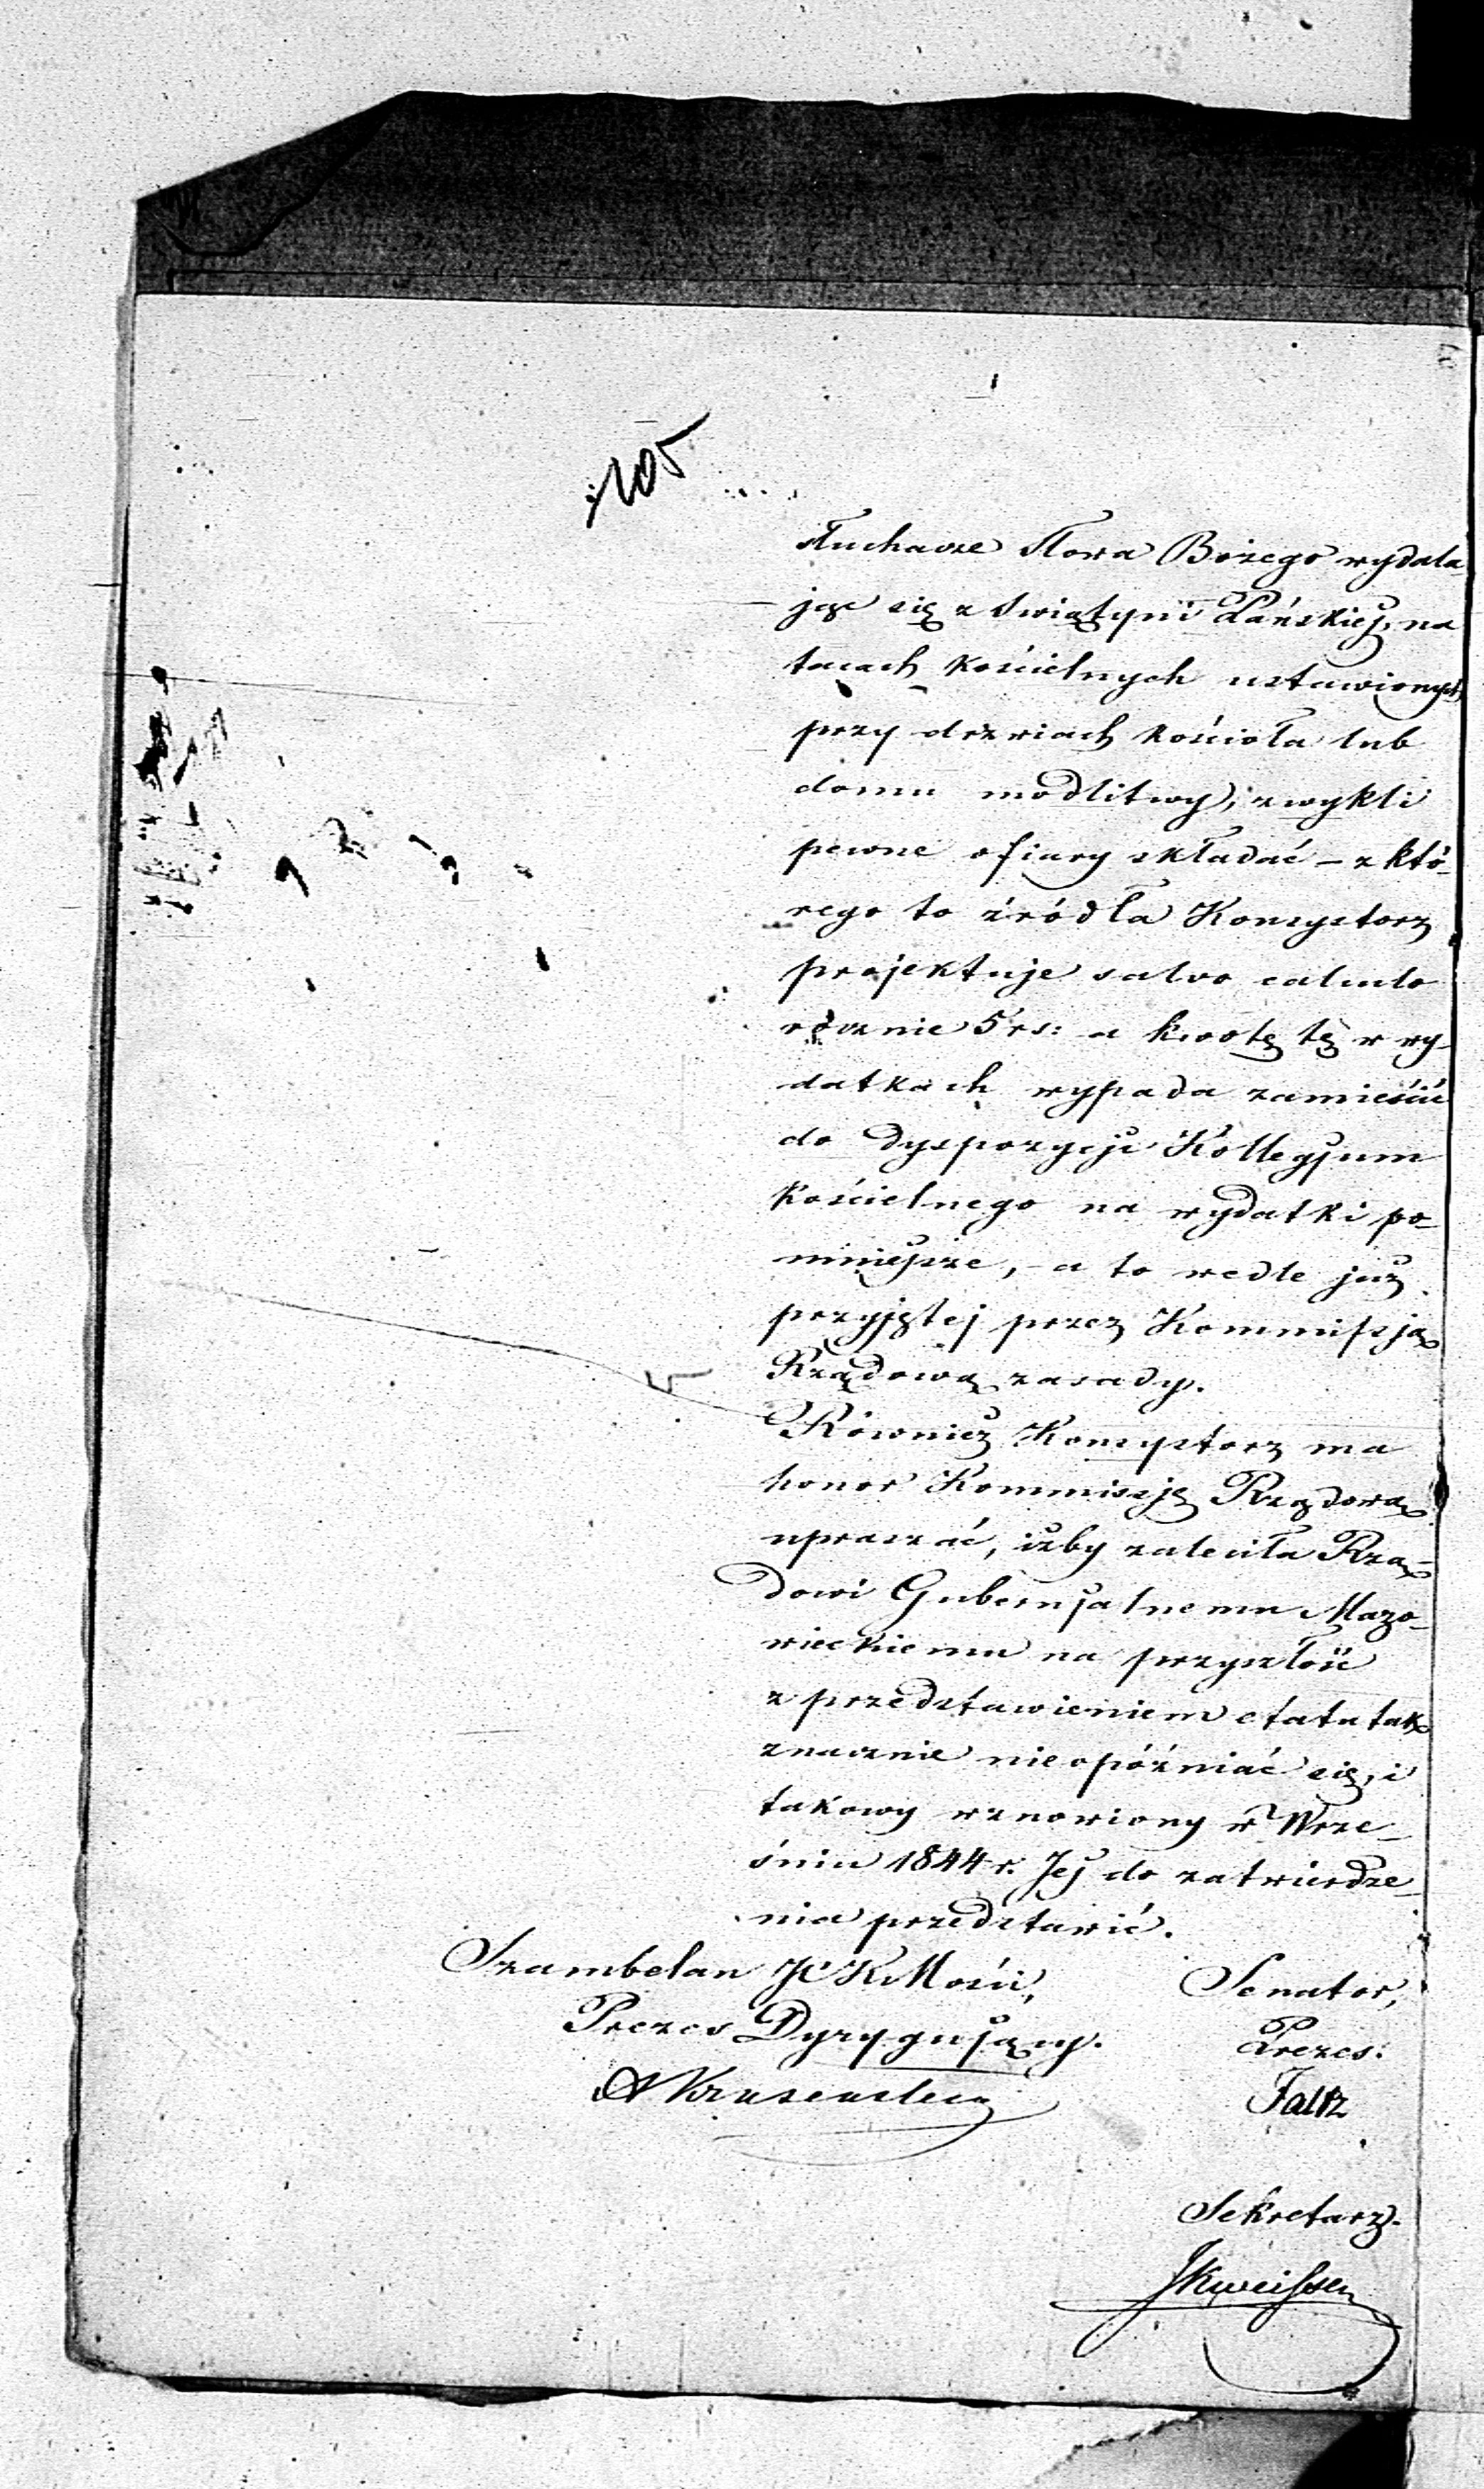 105
słuchacze słowa Bożego wydala-
jąc się z Swiątyni Pańskiej, na
tacach kościelnych ustawionych
przy drzwiach kościoła lub
domu modlitwy, zwykli
pewne ofiary składać – z któ-
rego to źródła Konsystorz
projektuje salvo calculo
rocznie 5 rs: a kwotę tę w wy-
datkach wypada zamieścić
do dyspozycji Kollegjum
Kościelnego na wydatki po-
mniejsze, – a to wedle już
przyjętej przez Kommissją
Rządową zasady.
Również Konsystorz ma
honor Kommissję Rządową
upraszać, iżby zaleciła Rzą-
dowi Gubernjalnemu Mazo-
wieckiemu na przyszłość
z przedstawieniem etatu tak
znacznie nie opóźniać się, i
takowy wznowiony w Wrze-
śniu 1844 r. Jej do zatwierdze-
nia przedstawić.
Szambelan JCKMości, Senator,
Prezes Dyrygujący. Prezes:
Faltz
Sekretarz.